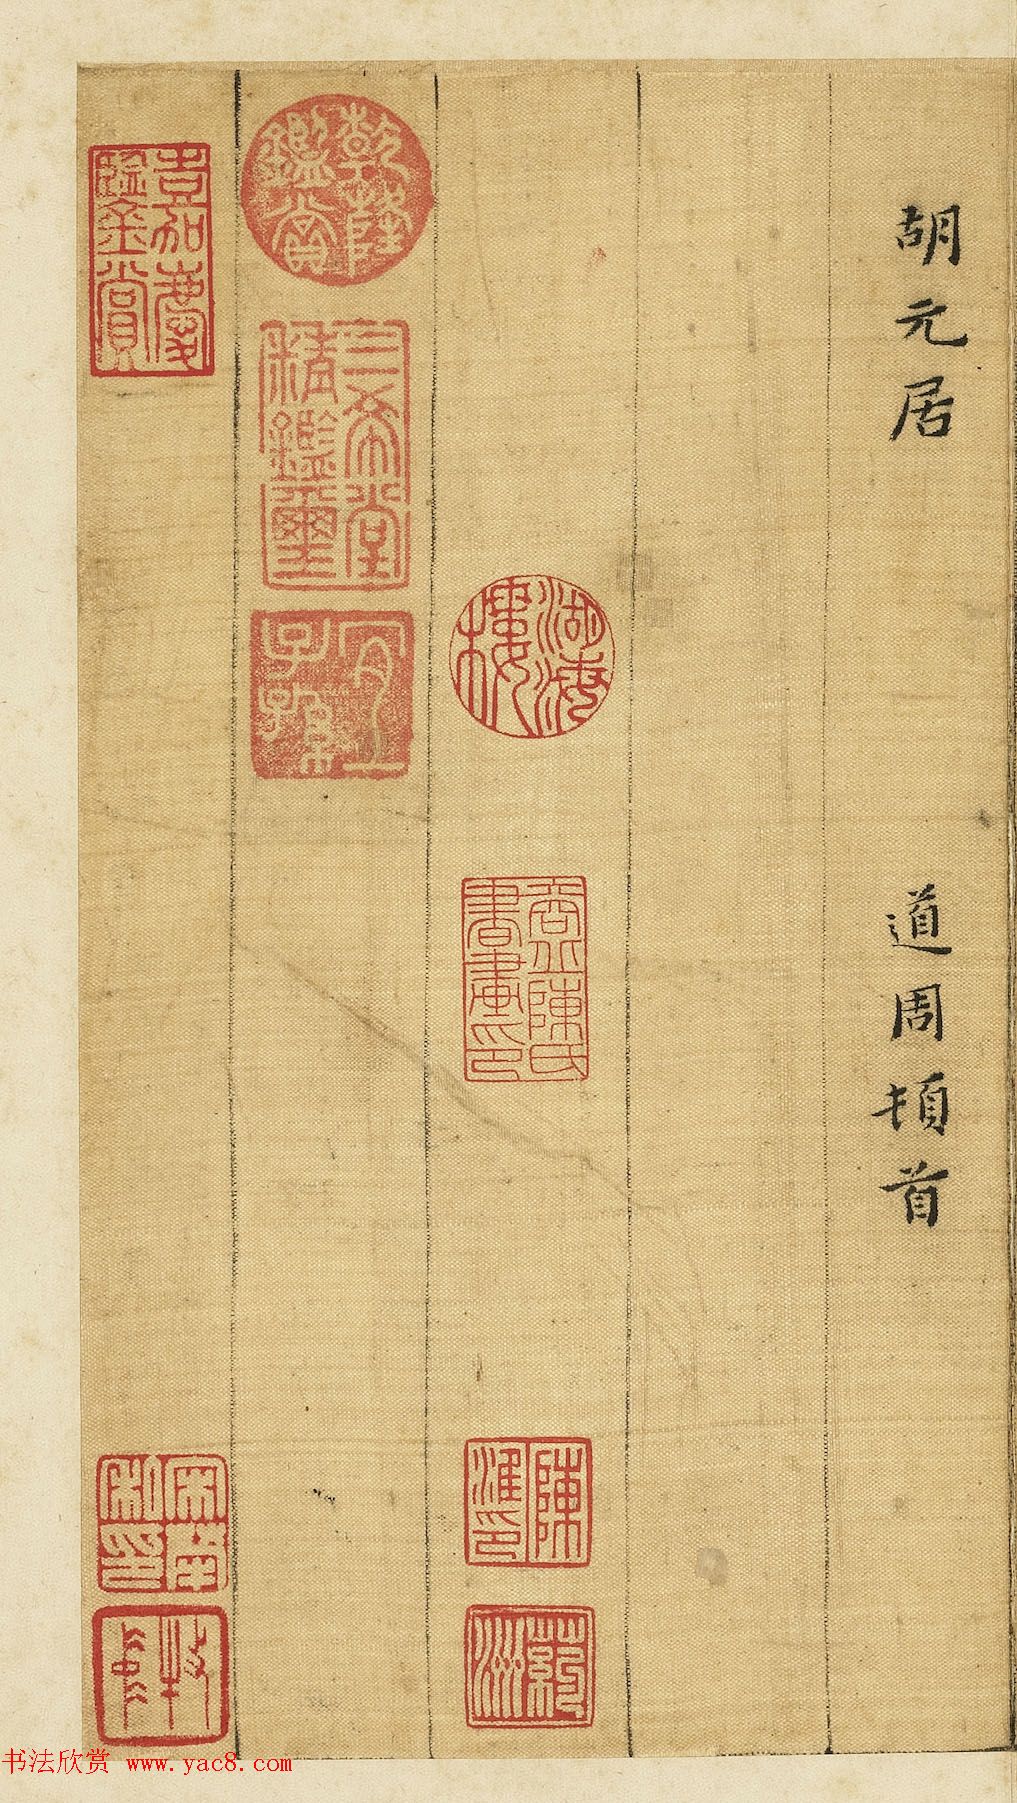 胡元居 道周頓首
湖海樓
商丘陳氏書畫印
陳淮印
藥洲
乾隆鑑賞
三希堂精鑑璽
宜子孫
嘉慶鑑賞
宋犖私印
書法欣赏 www.yac8.com